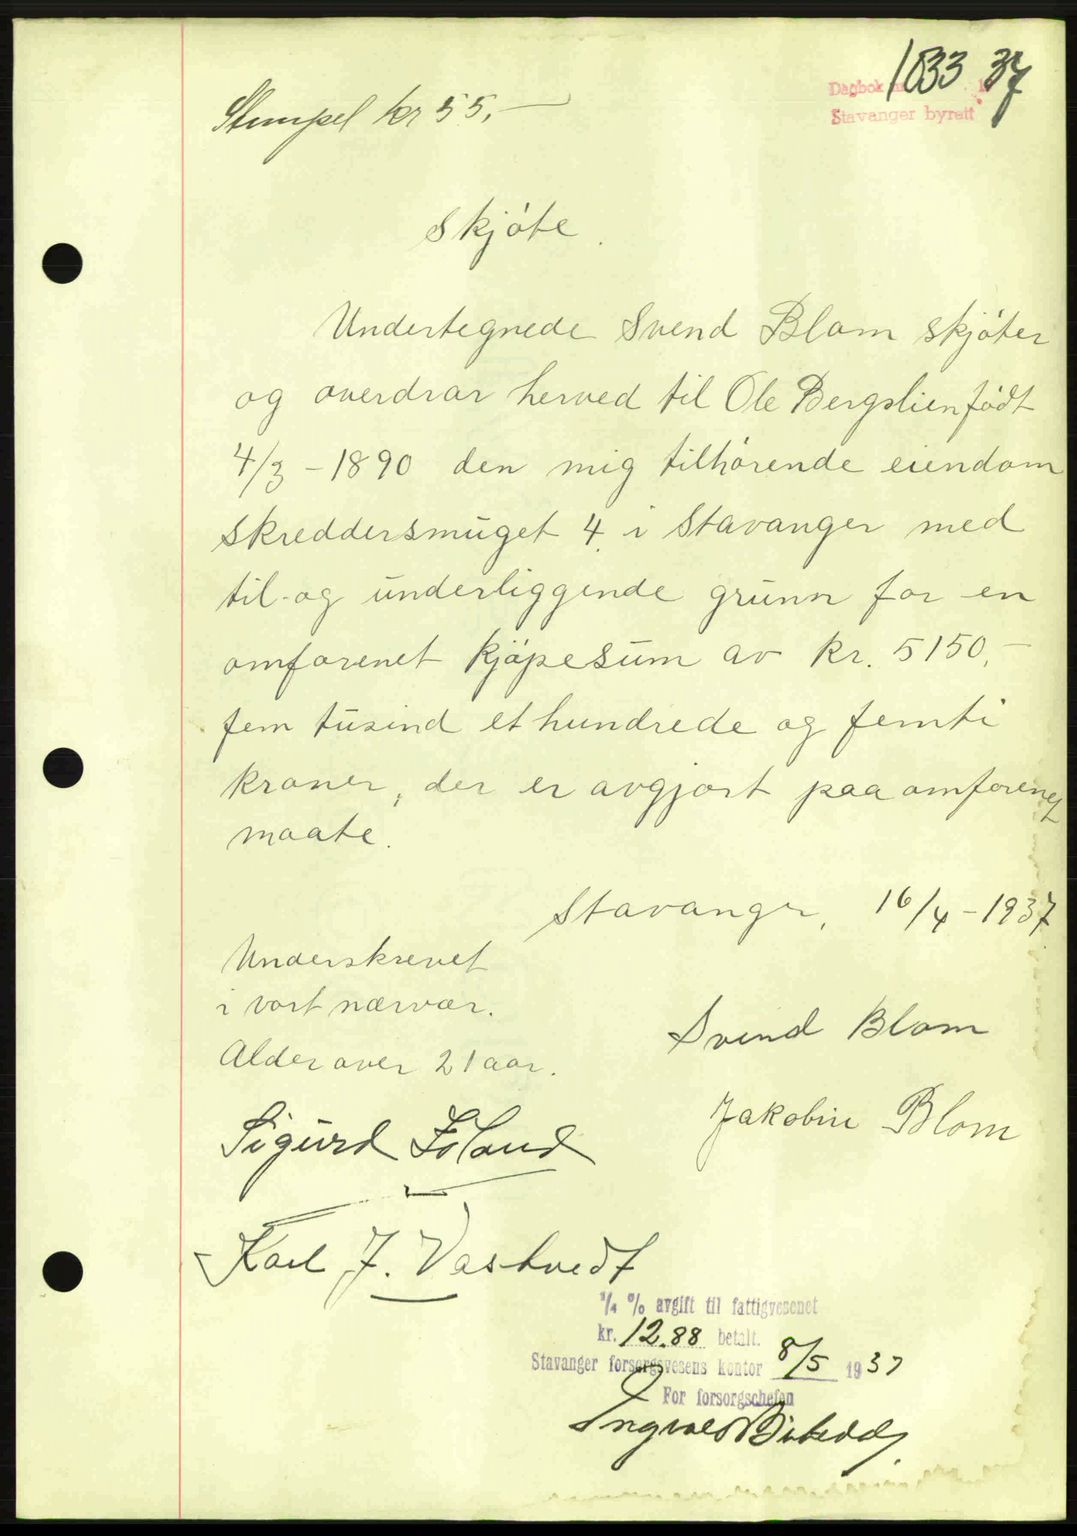 1833 37
Dagbok nr. 19
Stavanger byrett
Stempel kr 55,-
Skjøte.
Undertegnede Svend Blom skjøter
og overdrar herved til Ole Bergslien født
4/3 - 1890 den mig tilhørende eiendom
Skreddersmuget 4. i Stavanger med
til- og underliggende grunn for en
omforenet kjøpesum av kr. 5150,-
fem tusind et hundrede og femti
kroner, der er avgjort paa omforenet
maate.
Stavanger, 16/4 - 1937.
Underskrevet
i vort nærvær.
Alder over 21 aar.
Svend Blom
Jakobin Blom
Sigurd
Karl J.
1/4 % avgift til fattigvesenet
kr. 12.88 betalt.
Stavanger forsorgsvesens kontor 8/5 1937
For forsorgschefen